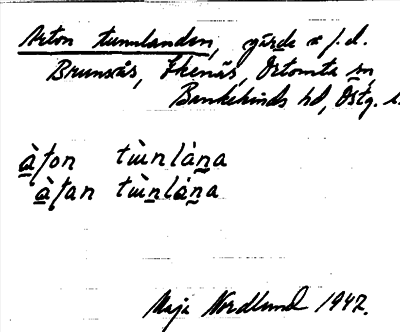 Arton tunnlanden, gärde å f.d.
Brunsås, Ekenäs, Örtomta sn
Bankekinds hd, Östg. l.
àton tùnlána
àtan tùnlána
Maja Nordlund 1947.